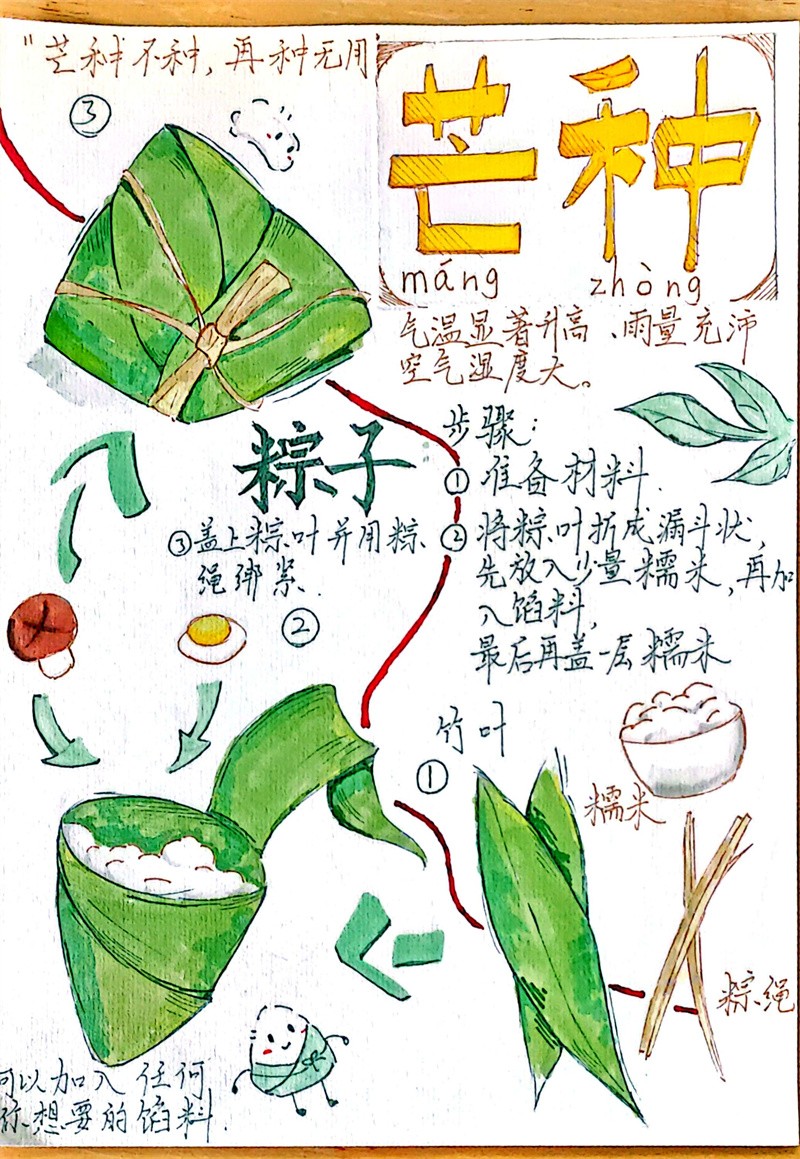 "芒种不种，再种无用
芒种
máng zhòng
气温显著升高、雨量充沛
空气湿度大。
③
粽子
步骤：
①准备材料.
②将粽叶折成漏斗状，
先放入少量糯米，再加
入馅料，
最后再盖一层糯米
③盖上粽叶并用粽
绳绑紧.
②
竹叶
①
糯米
粽绳
可以加入任何
你想要的馅料.